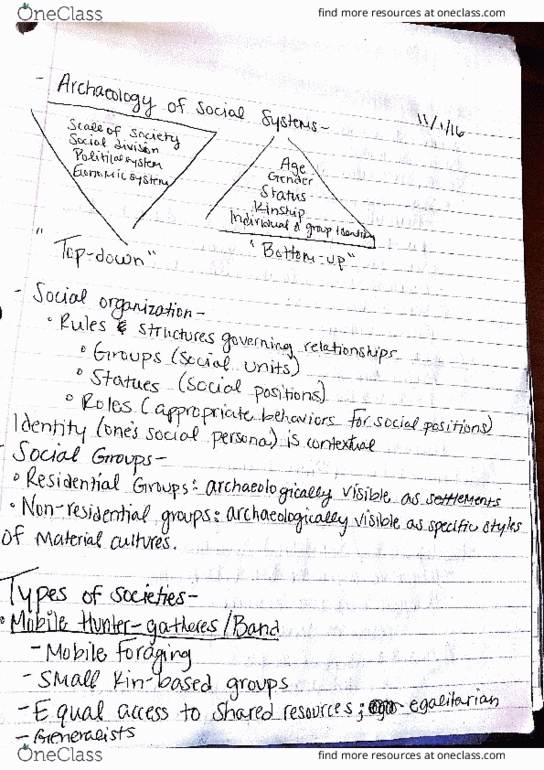 OneClass
find more resources at oneclass.com
- Archaeology of Social Systems-
11/1/16
Scale of Society
Social division
Political system
Economic system
"Top-down"
Age
Gender
Status
Kinship
Individual & group identity
"Bottom-up"
- Social organization-
• Rules & structures governing relationships
• Groups (social units)
• Statues (social positions)
• Roles (appropriate behaviors for social positions)
Identity (one's social persona) is contextual
- Social Groups-
• Residential Groups: archaeologically visible as settlements
• Non-residential groups: archaeologically visible as specific styles
of material cultures.
Types of societies-
• Mobile Hunter-gatheres/Band
- Mobile foraging
- Small kin-based groups
- Equal access to shared resources; egalitarian
- Generalists
OneClass
find more resources at oneclass.com